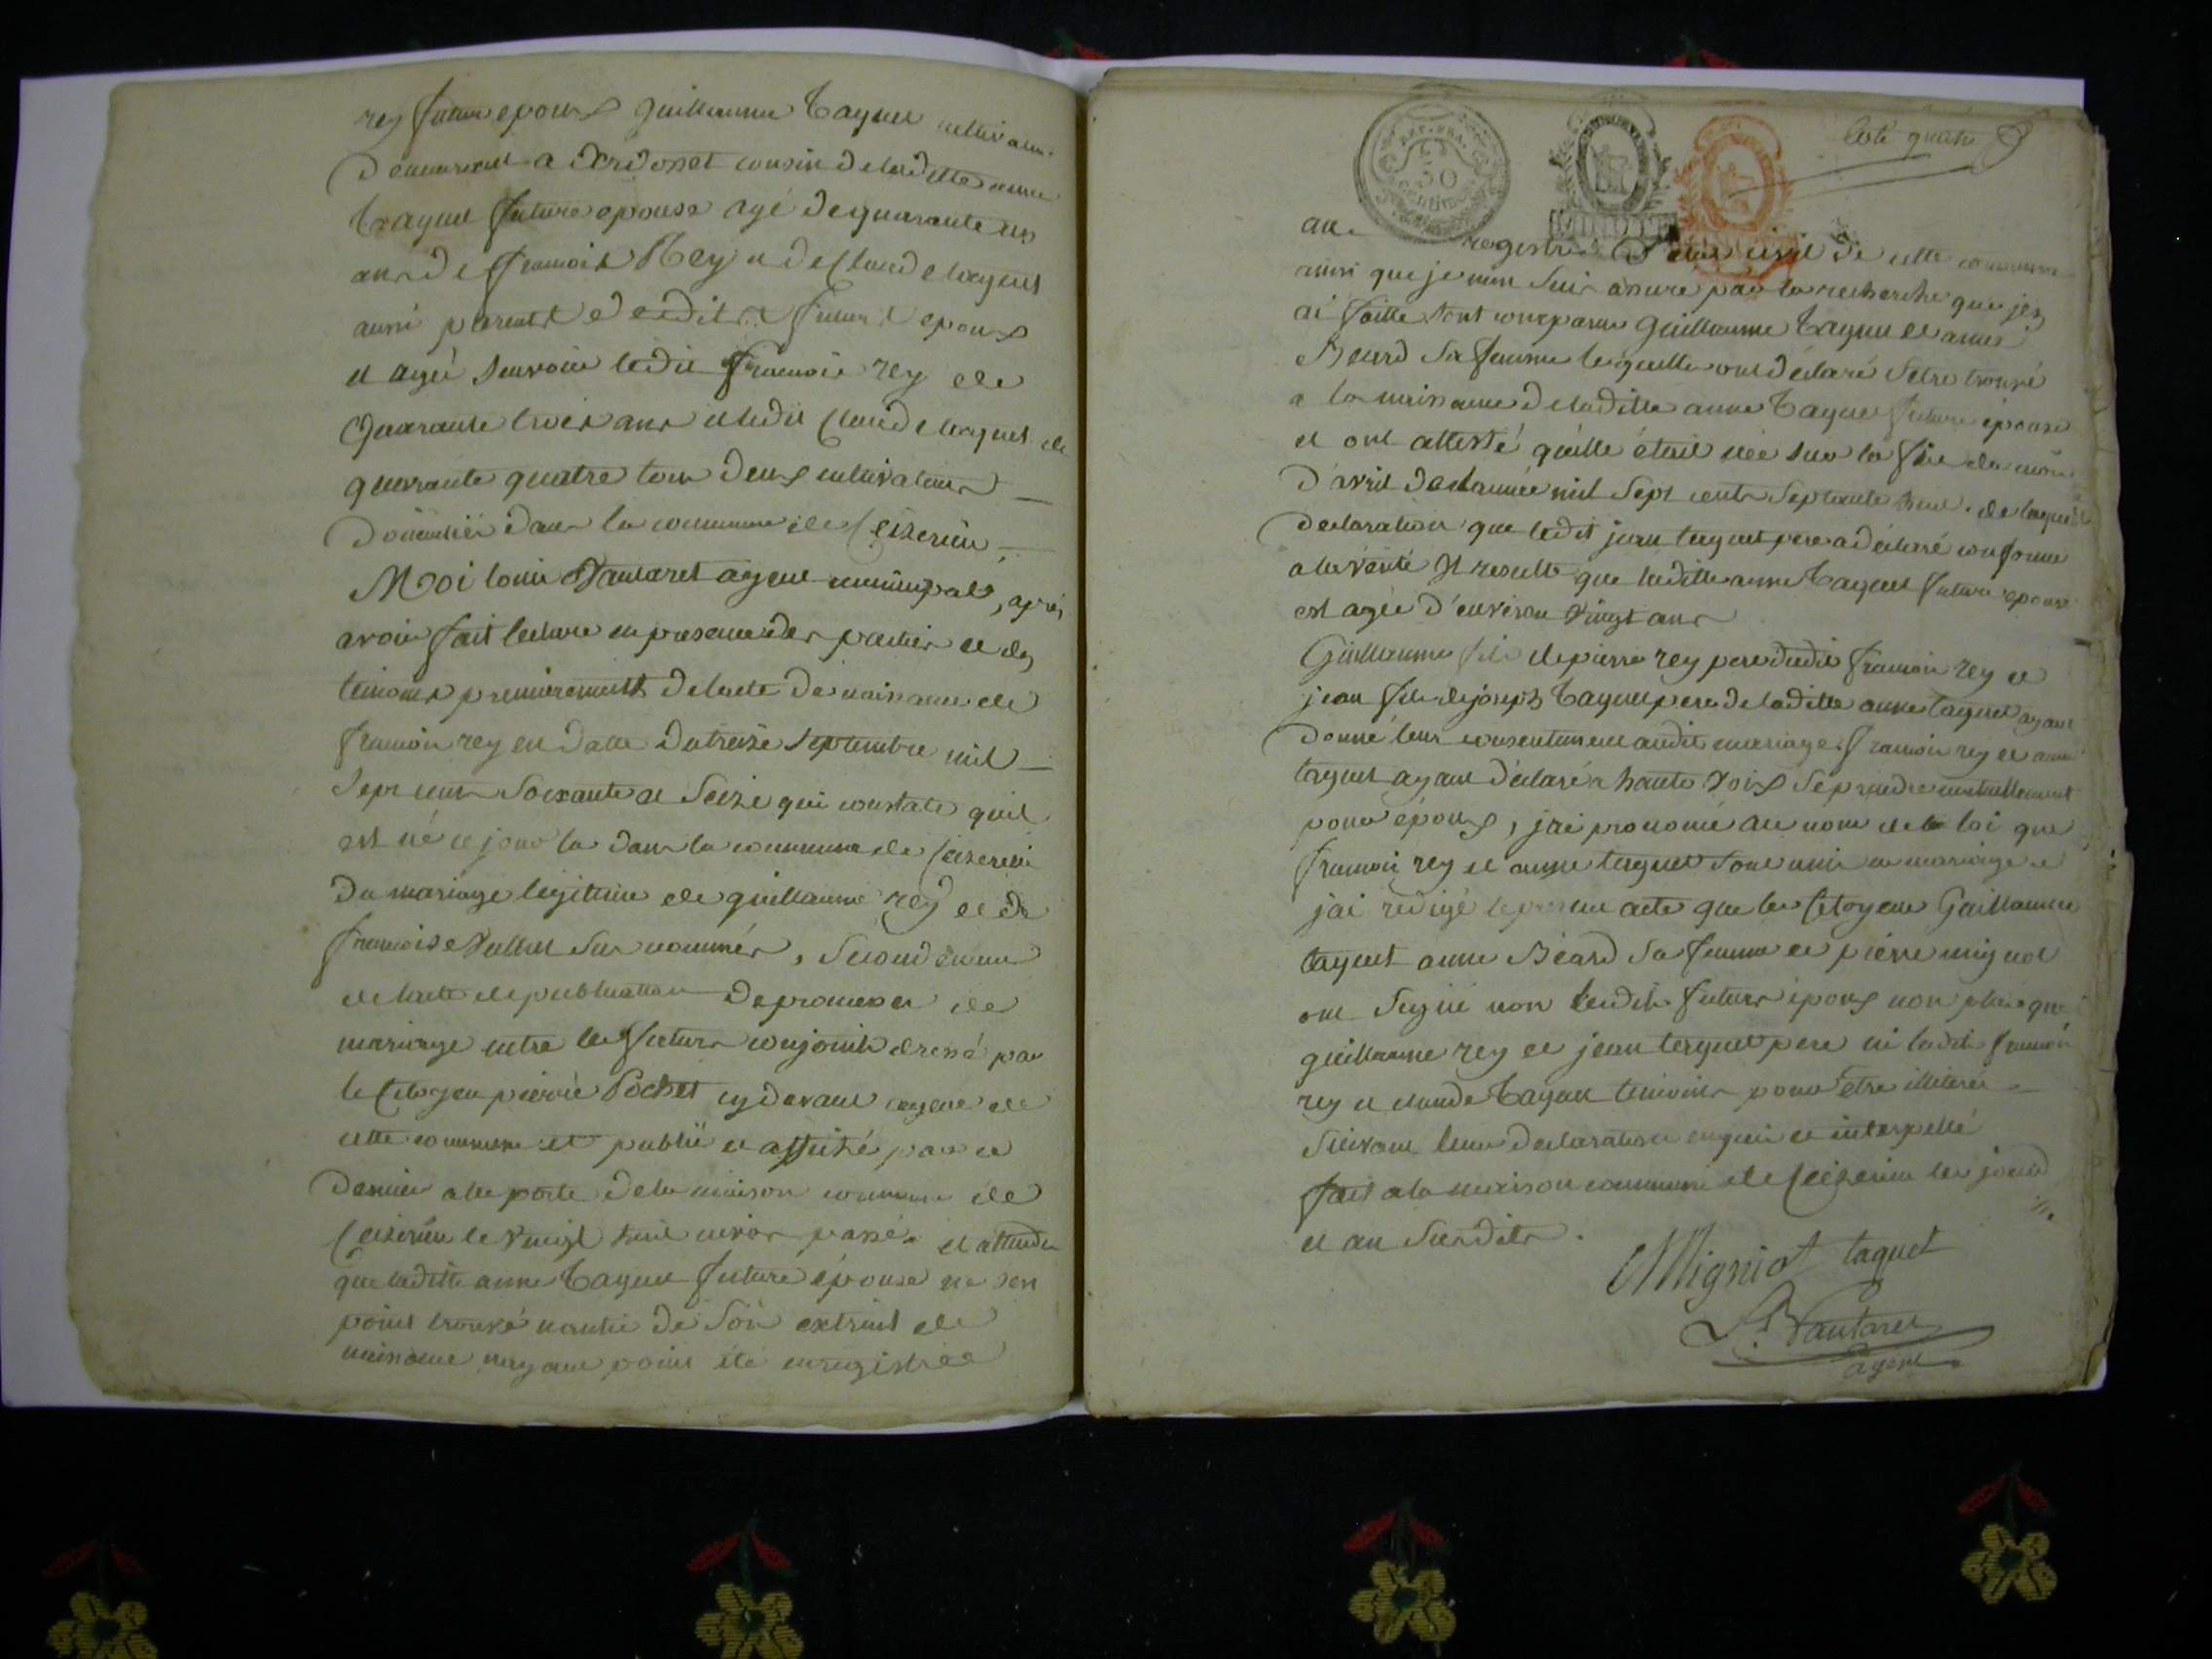 rey futur epoux guillaume Taguet cultivateur
demeurant a Ordonet cousin de laditte anne
Taguet future epouse agé de quarante un
ans de francois Rey et de Claude taguet
aussi parents desdits futurs epoux
et agés savoir ledit francois rey de
Quarante trois ans et ledit Claude taguet de
quarante quatre tous deux cultivateurs
domiciliés dans la commune de Ceizerieu
Moi louis Vautaret agent municipal, après
avoir fait lecture en presence des parties et des
temoins premierement de lacte de naissance de
francois rey en datte du treize septembre mil
sept cent soixante et seize qui constate quil
est né ce jour la dans la commune de Ceizerieu
du mariage legitime de guillaume rey et de
francoise Vullet sus nommés, secondement
de lacte de publication de promesse de
mariage entre les futurs conjoints dressé par
le Citoyen pierre Pochet cydevant agent de
cette commune et publié et affiché par ce
dernier a la porte de la maison commune de
Ceizerieu le vingt huit nivos passé. et attendu
que laditte anne Taguet future épouse ne sest
point trouvé nantie de son extrait de
naissance nayant point été enregistrée
Coté quatre
REP. FRA.
50
centimes
au registre d'etat civil de cette commune
ainsi que je men suis assuré par la recherche que jen
ai faitte sont comparus guillaume Taguet et anne
Béard sa femme lesquelles ont déclaré sètre trouvé
a la naissance de laditte anne Taguet future épouse
et ont attesté quélle était née sur la fin du mois
d'avril de lannée mil sept cent septante huit. de laquelle
declaration que ledit jean taguet pere a déclaré conforme
a la vérité Il resulte que laditte anne Taguet future epouse
est agée d'environ vingt ans
Guillaume fils de pierre rey pere dudit francois rey et
jean fils de joseph Taguet pere de laditte anne taguet ayant
donné leur consentement audit mariage. francois rey et anne
taguet ayant déclaré a haute voix se prendre mutuellement
pour époux, jai prononcé au nom de la loi que
francois rey et anne taguet sont unis en mariage et
jai redigé le present acte que les Citoyens Guillaume
taguet anne Béard sa femme et pierre mignot
ont signé non lesdits futurs époux non plus que
guillaume rey et jean taguet pere ni lesdits francois
rey et claude Taguet temoins pour être illiterés
suivant leur declaration enquis et interpellé
fait a la maison commune de Ceizerieu les jour
et an susdits.
Migniot taguet
L. Vautaret
agent